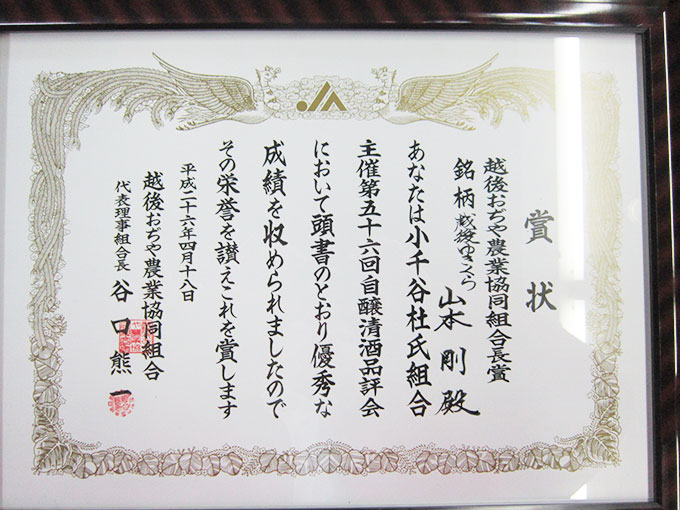 賞状
越後おぢや農業協同組合長賞
銘柄 越後ゆきくら
山本 剛 殿
あなたは小千谷杜氏組合
主催第五十六回自醸清酒品評会
において頭書のとおり優秀な
成績を収められましたので
その栄誉を讃えこれを賞します
平成二十六年四月十八日
越後おぢや農業協同組合
代表理事組合長 谷口熊一